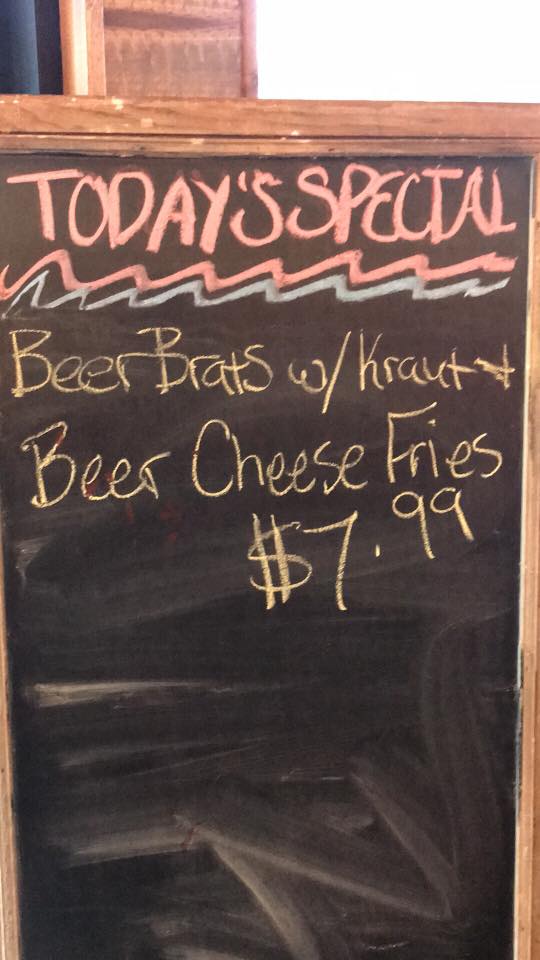 TODAY'S SPECIAL
Beer Brats w/ Kraut +
Beer Cheese Fries
$7.99